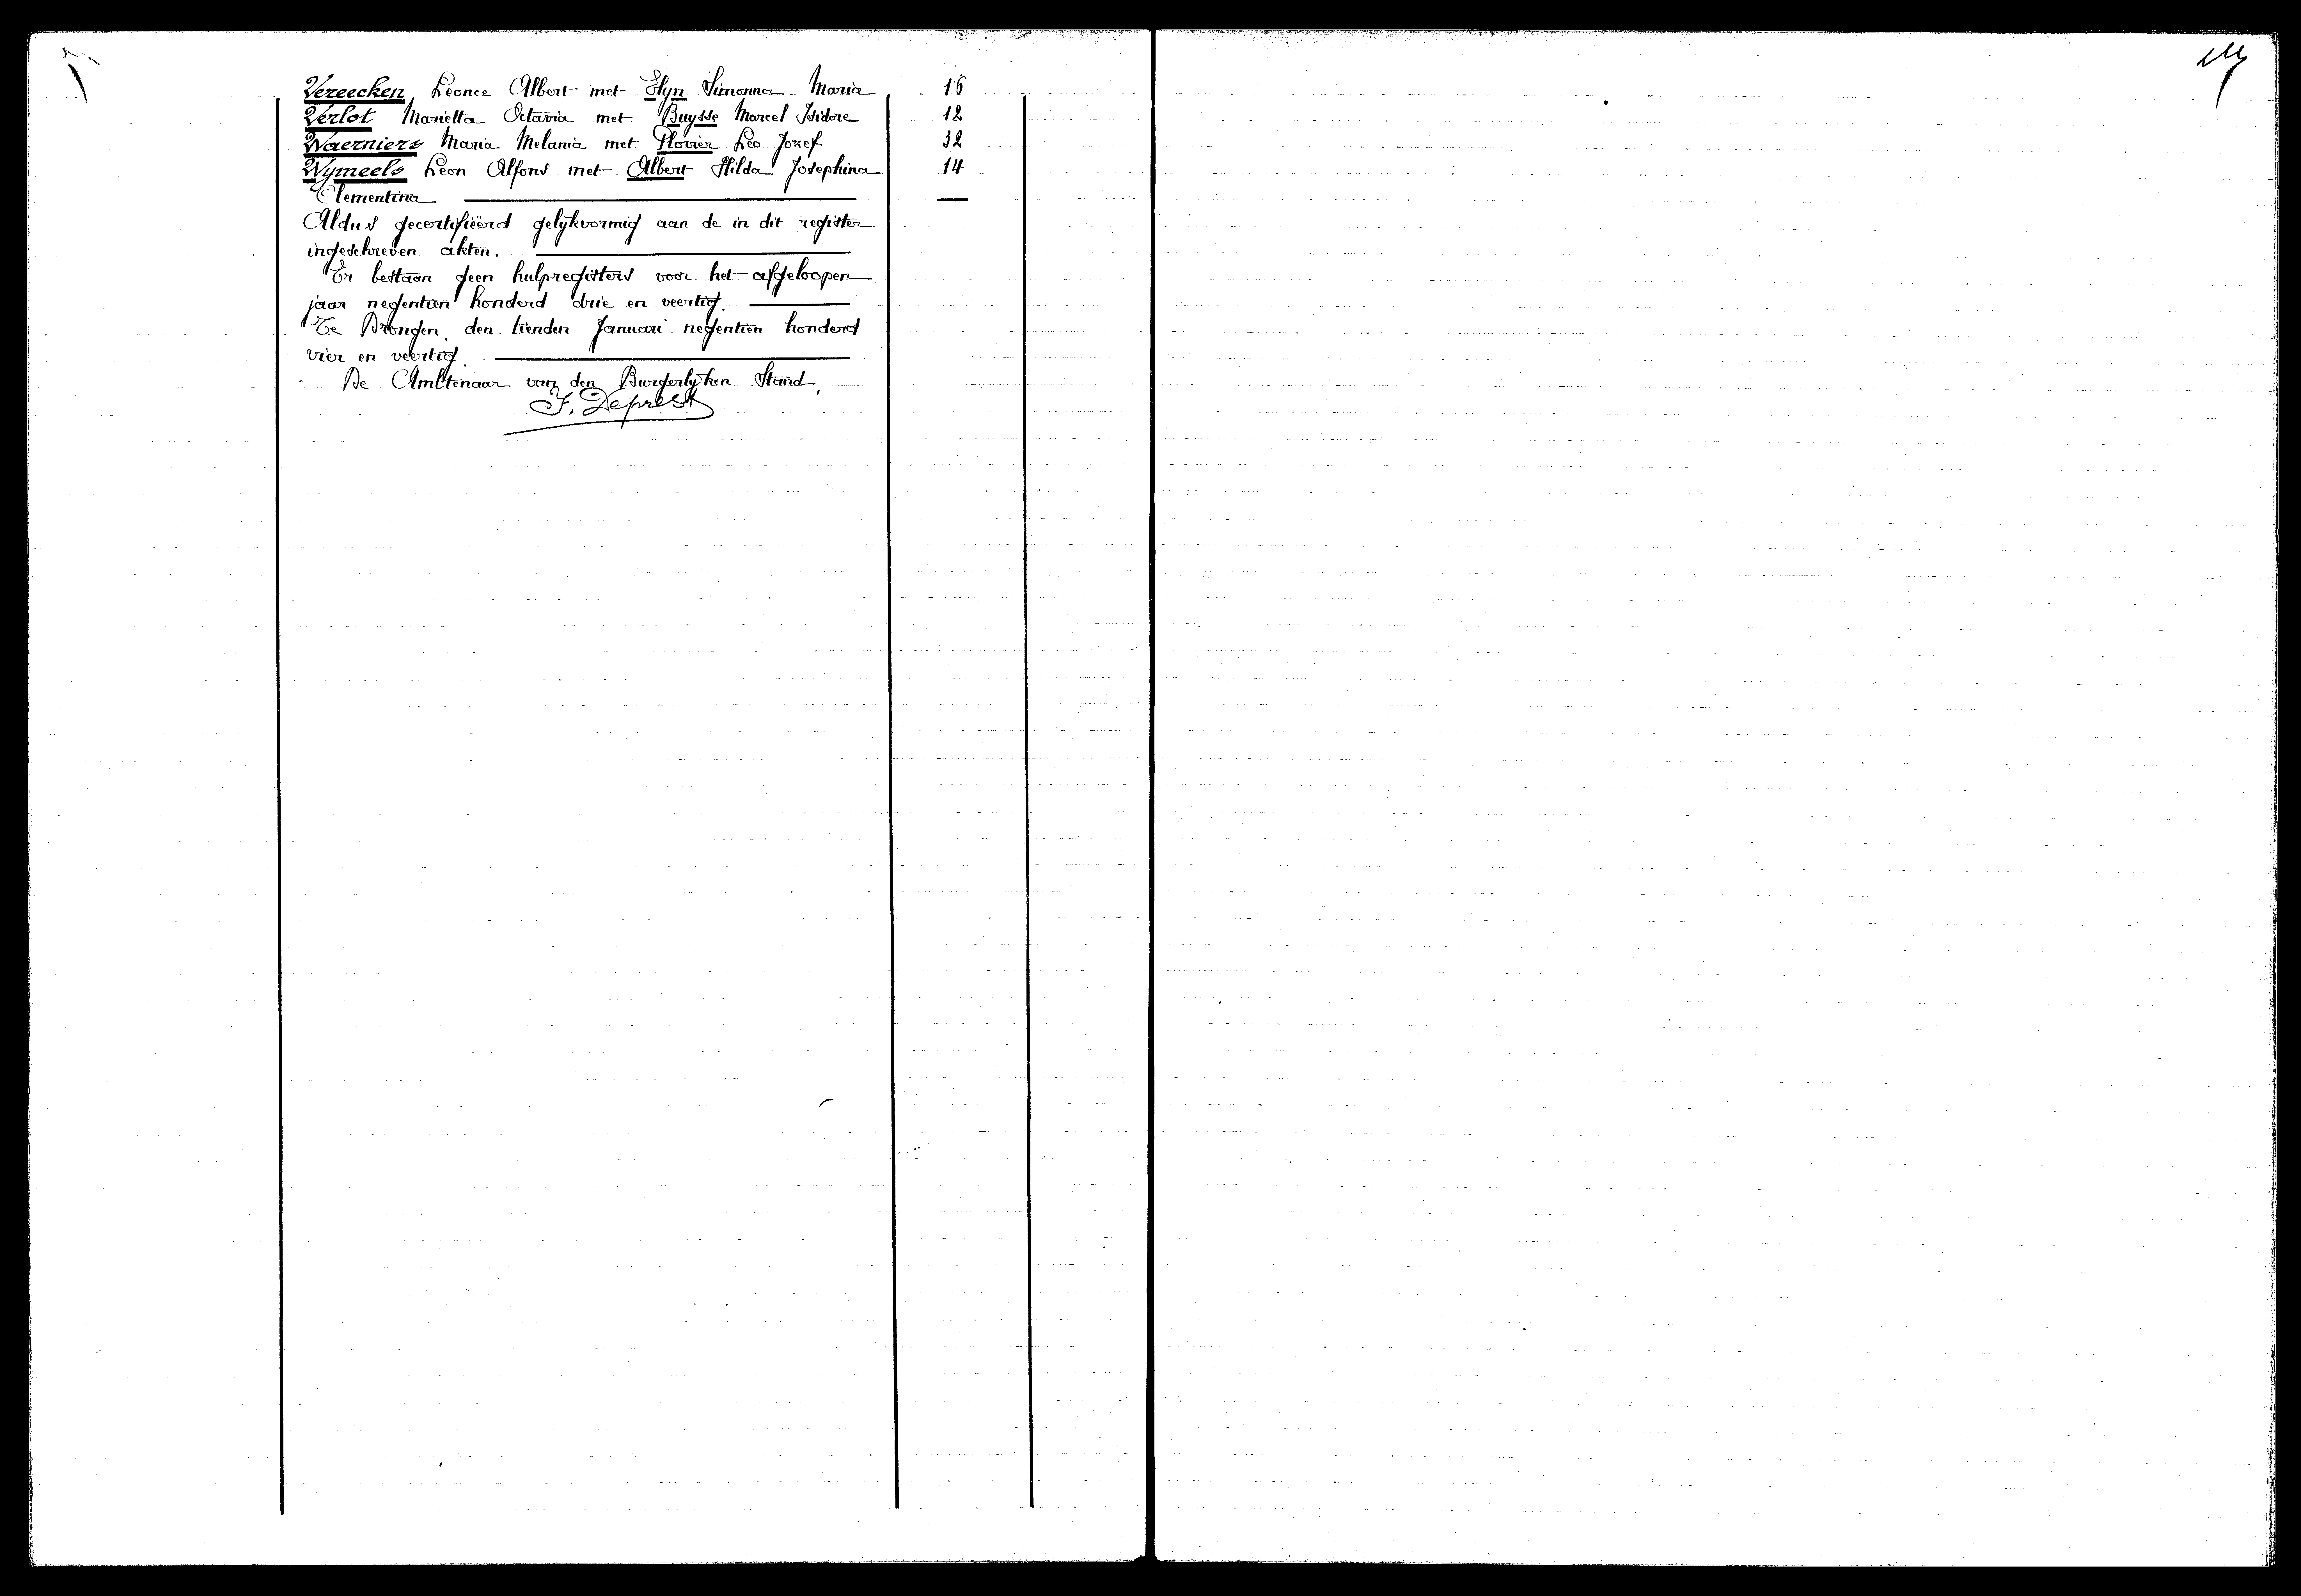 Vereecken Leonce Albert met Elyn Simonna Maria 16
Verlot Marietta Octavia met Buysse Marcel Isidore 12
Waerniers Maria Melania met Plovier Leo Jozef 32
Wymeels Leon Alfons met Albert Hilda Josephina 14
Clementina
Aldus gecertifiëerd gelijkvormig aan de in dit register
ingeschreven akten.
Er bestaan geen hulpregisters voor het afgeloopen
jaar negentien honderd drie en veertig.
Te Drongen, den tienden Januari negentien honderd
vier en veertig.
De Ambtenaar van den Burgerlijken Stand,
J. Deprest